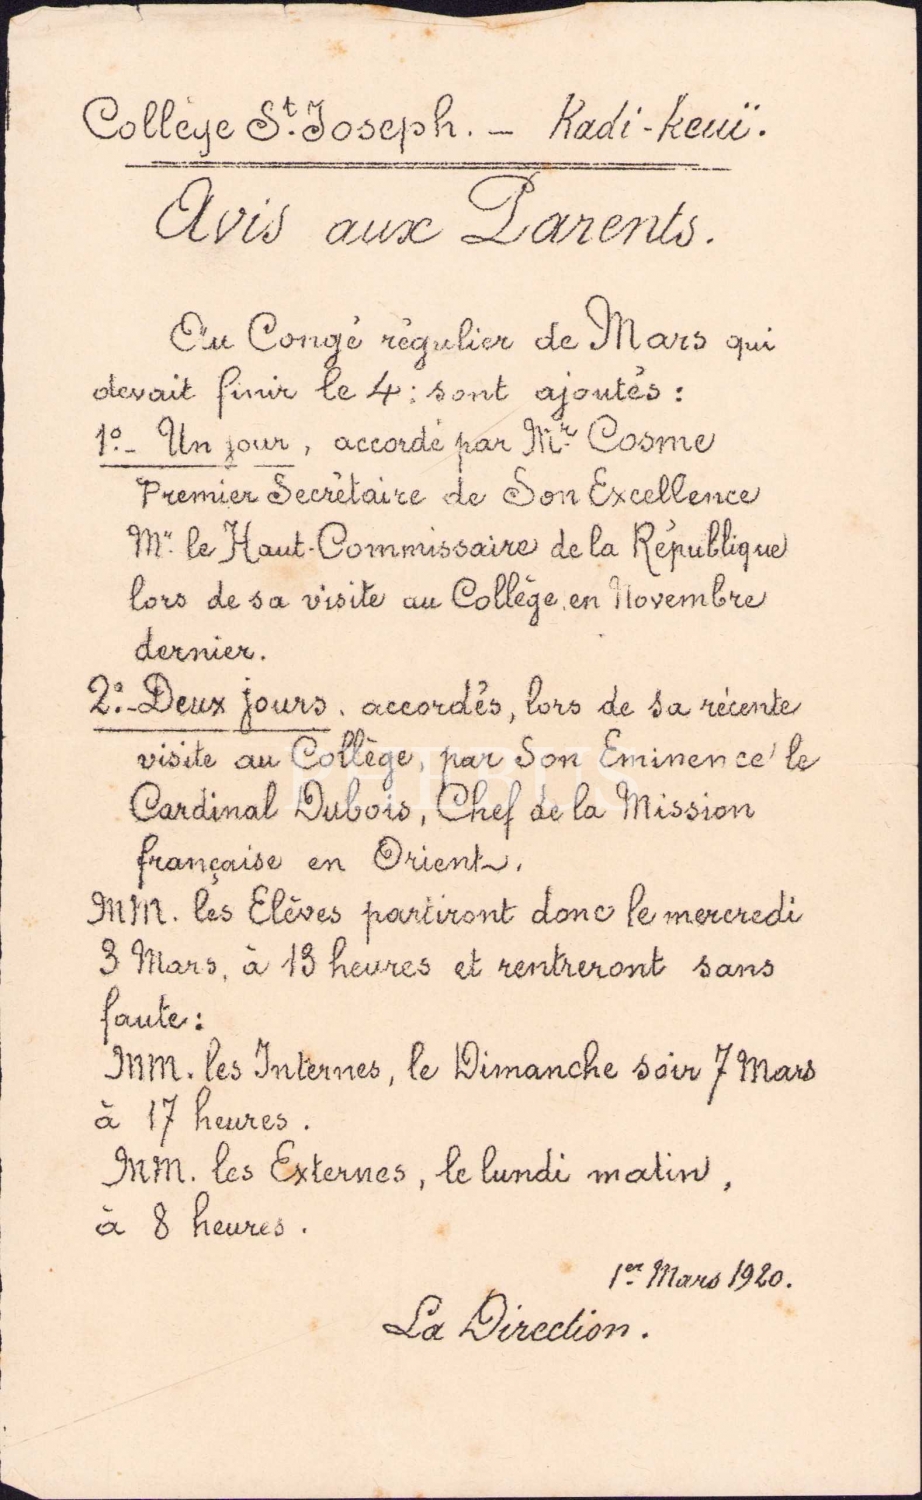 Collège St. Joseph. – Kadi-keuï.
Avis aux Parents.
Au Congé régulier de Mars qui
devait finir le 4 ; sont ajoutés :
1º.- Un jour, accordé par Mr. Cosme
Premier Secrétaire de Son Excellence
Mr. le Haut-Commissaire de la République
lors de sa visite au Collège, en Novembre
dernier.
2º.- Deux jours. accordés, lors de sa récente
visite au Collège, par Son Eminence le
Cardinal Dubois, Chef de la Mission
française en Orient.
MM. les Elèves partiront donc le mercredi
3 Mars, à 13 heures et rentreront sans
faute :
MM. les Internes, le Dimanche soir 7 Mars
à 17 heures.
MM. les Externes, le lundi matin,
à 8 heures.
1er Mars 1920.
La Direction.
PHEBUS